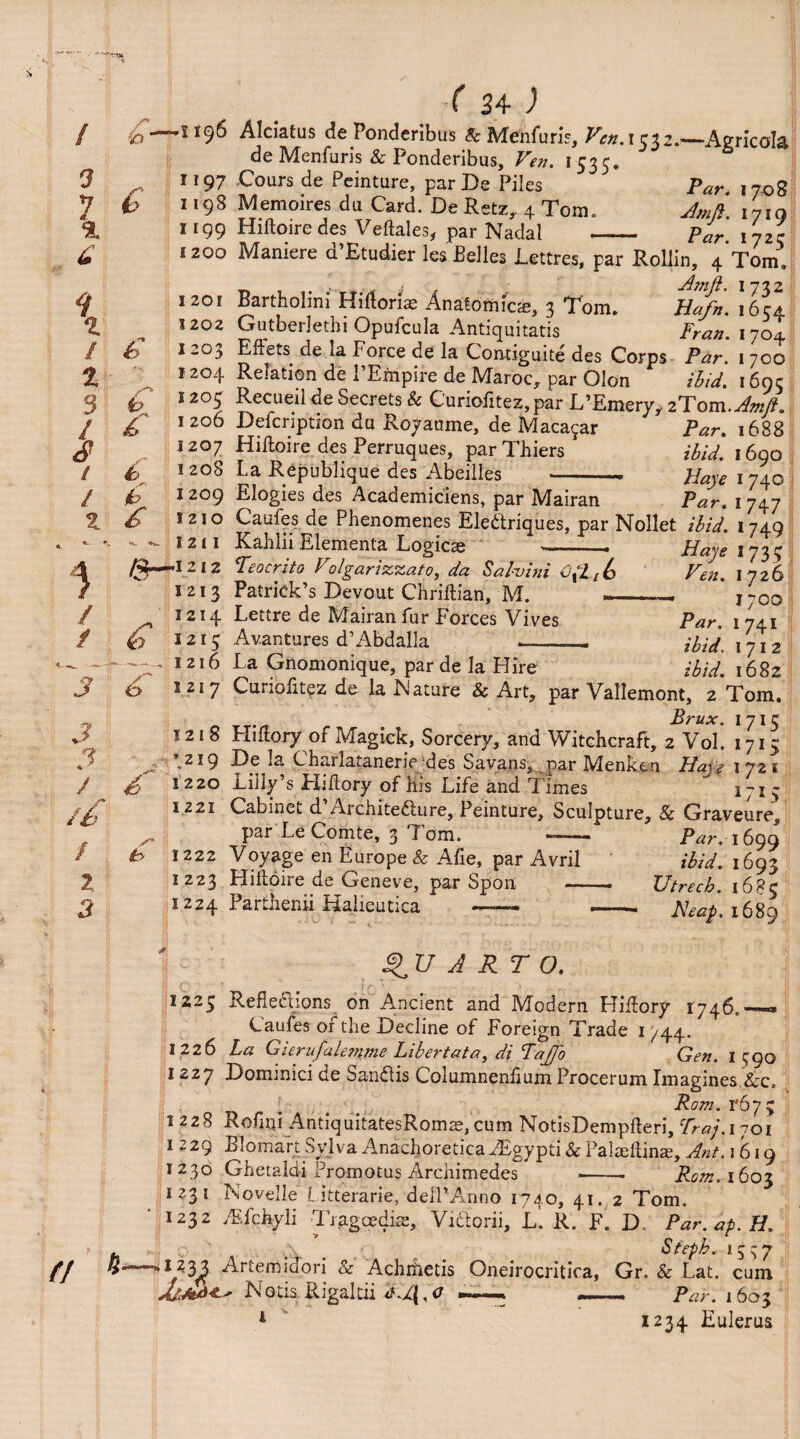 ( 34 )
/ 6 — 1196 Alciatus de Ponderibus & Menſuris, Ven. 1532.—Agricola
de Menſuris & Ponderibus, Ven. 1535.
3 1197 Cours de Peinture, par De Piles Par. 1708
7 6 1198 Memoires du Card. De Retz, 4 Tom. Amſt. 1719
2 1199 Hiſtoire des Veſtales, par Nadal —— Par. 1725
6 1200 Maniere d'Etudier les Belles Lettres, par Rollin, 4 Tom.
Amſt. 1732
4 1201 Bartholini Hiſtoriæ Anatomicæ, 3 Tom. Hafn. 1654
2 1202 Gutberlethi Opuſcula Antiquitatis Fran. 1704
/ 6 1203 Effets de la Force de la Contiguité des Corps Par. 1700
2 1204 Relation de l'Empire de Maroc, par Olon ibid. 1695
3 6 1205 Recueil de Secrets & Curioſitez, par L'Emery, 2 Tom. Amſt.
/ 6 1206 Deſcription du Royaume, de Macaçar Par. 1688
8 1207 Hiſtoire des Perruques, par Thiers ibid. 1690
/ 6 1208 La Republique des Abeilles —— Haye 1740
/ 6 1209 Elogies des Academiciens, par Mairan Par. 1747
2 6 1210 Cauſes de Phenomenes Electriques, par Nollet ibid. 1749
1211 Kahlii Elementa Logicæ —— Haye 1735
4 1212 Teocrito Volgarizzato, da Salvini Ven. 1726
? 1213 Patrick's Devout Chriſtian, M. —— 1700
/ 1214 Lettre de Mairan ſur Forces Vives Par. 1741
/ 6 1215 Avantures d'Abdalla —— ibid. 1712
1216 La Gnomonique, par de la Hire ibid. 1682
3 6 1217 Curioſitez de la Nature & Art, par Vallemont, 2 Tom.
Brux. 1715
3 1218 Hiſtory of Magick, Sorcery, and Witchcraft, 2 Vol. 1715
3 1219 De la Charlatanerie des Savans, par Menken Haye 1721
/ 6 1220 Lilly's Hiſtory of his Life and Times 1715
16 1221 Cabinet d'Architecture, Peinture, Sculpture, & Graveure,
par Le Comte, 3 Tom. —— Par. 1699
/ 6 1222 Voyage en Europe & Aſie, par Avril ibid. 1693
2 1223 Hiſtoire de Geneve, par Spon —— Utrech. 1685
3 1224 Parthenii Halieutica —— —— Neap. 1689
QUARTO.
1225 Reflections on Ancient and Modern Hiſtory 1746.——
Cauſes of the Decline of Foreign Trade 1744.
1226 La Gieruſalemme Libertata, di Taſſo Gen. 1590
1227 Dominici de Sanctis Columnenſium Procerum Imagines &c.
Rom. 1675
1228 Roſini Antiquitates Romæ, cum Notis Dempſteri, Traj. 1701
1229 Blomart Sylva Anachoretica Ægypti & Palæſtinæ, Ant. 1619
1230 Ghetaldi Promotus Archimedes —— Rom. 1603
1231 Novelle Litterarie, dell'Anno 1740, 41. 2 Tom.
1232 Æſchyli Tragœdiæ, Victorii, L. R. F. D. Par. ap. H.
Steph. 1557
11 1233 Artemidori & Achmetis Oneirocritica, Gr. & Lat. cum
Notis Rigaltii —— —— Par. 1603
1234 Eulerus